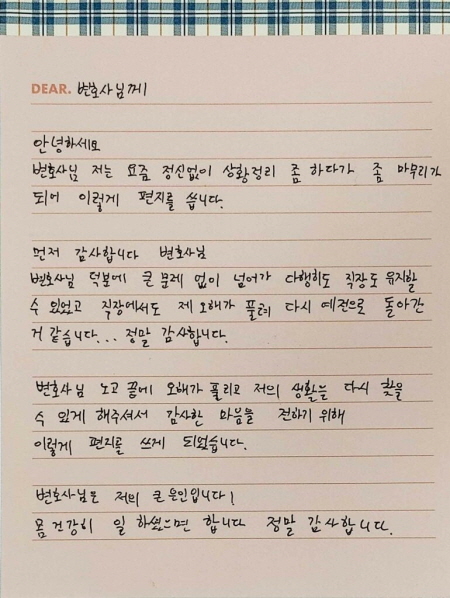 DEAR. 변호사님께
안녕하세요
변호사님 저는 요즘 정신없이 상황정리 좀 하다가 좀 마무리가
되어 이렇게 편지를 씁니다.
먼저 감사합니다 변호사님
변호사님 덕분에 큰 문제 없이 넘어가 다행히도 직장도 유지할
수 있었고 직장에서도 제 오해가 풀려 다시 예전으로 돌아간
거 같습니다... 정말 감사합니다.
변호사님 노고 끝에 오해가 풀리고 저의 생활을 다시 찾을
수 있게 해주셔서 감사한 마음을 전하기 위해
이렇게 편지를 쓰게 되었습니다.
변호사님은 저의 큰 은인입니다!
몸 건강히 일 하셨으면 합니다 정말 감사합니다.